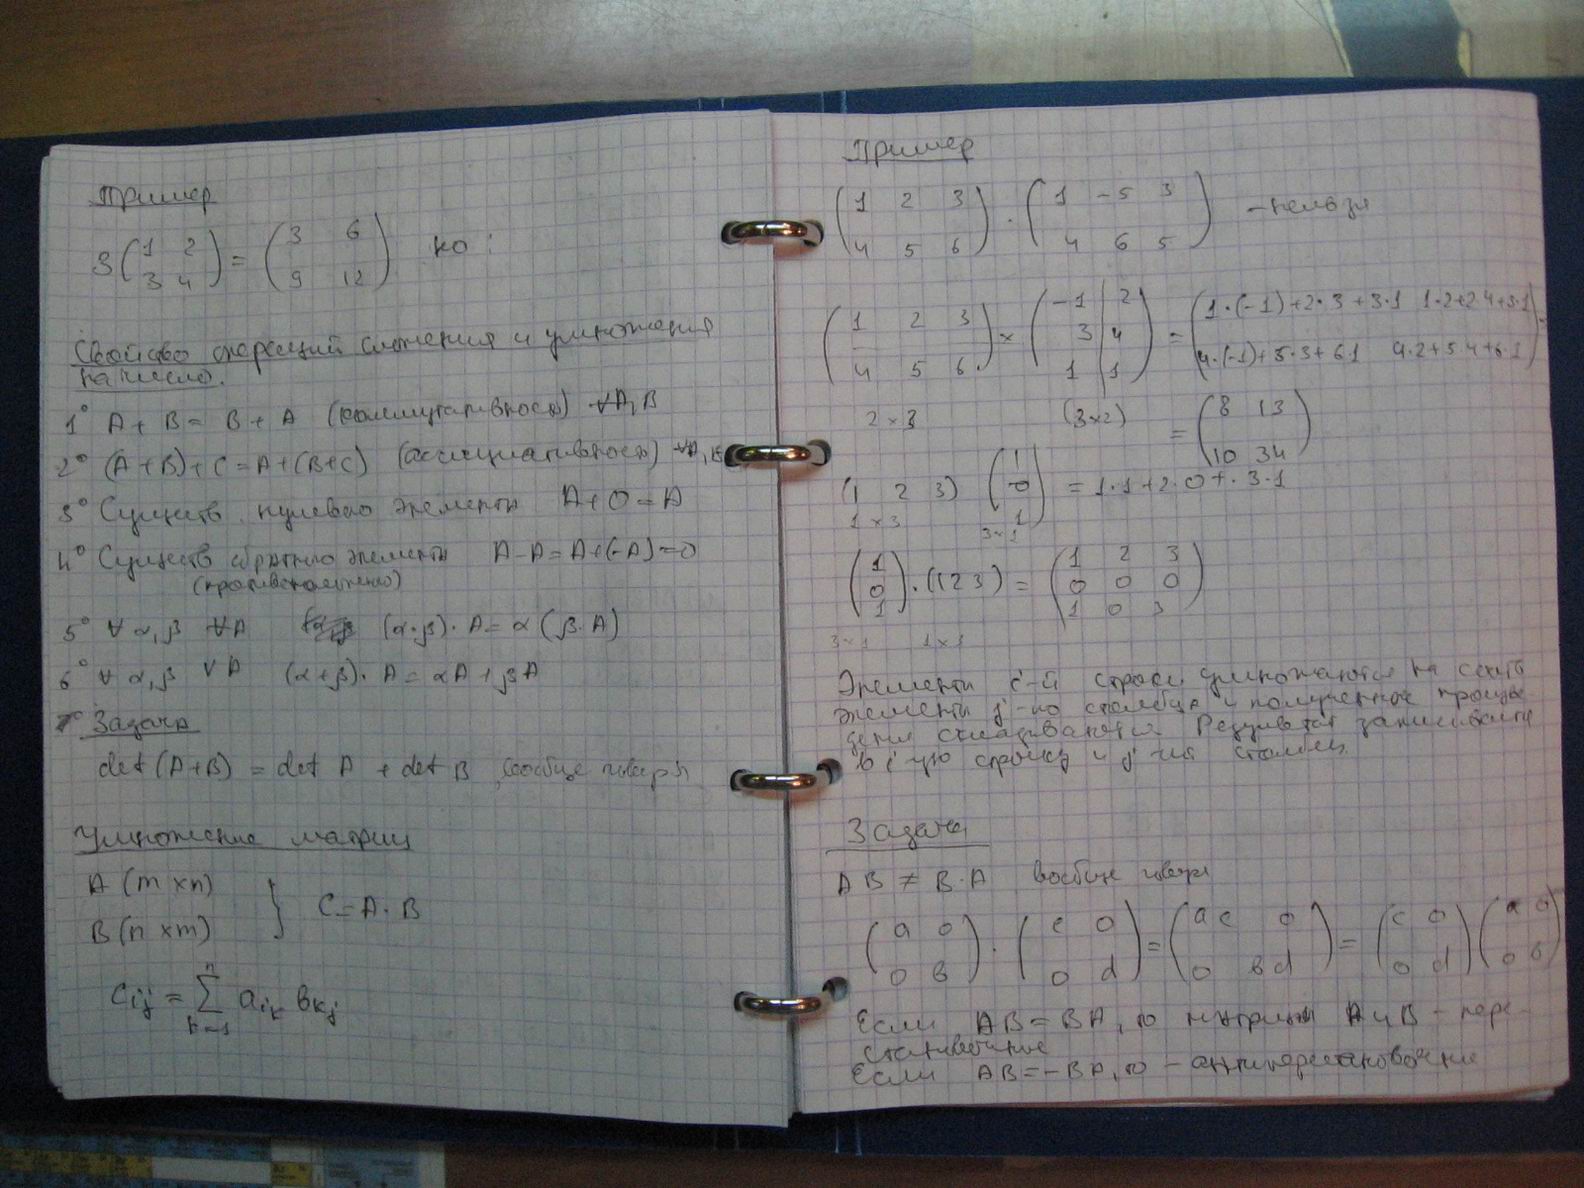 Пример
3 (1 2 = (3 6 но:
3 4) 9 12)
Свойство операций сложения и умножения
на число.
1° A + B = B + A (коммутативность) ∀A,B
2° (A+B)+C = A+(B+C) (ассоциативность) ∀A,B
3° Существ. нулевого элемента A+O=A
4° Существ обратного элемента A-A=A+(-A)=0
(противоположного)
5° ∀ α,β ∀A (α·β)·A = α(β·A)
6° ∀ α,β ∀A (α+β)·A = αA+βA
Задача
det(A+B) = det A + det B, вообще говоря
Умножение матриц
A (m×n)
C=A·B
B (n×m)
Cij = n∑k=1 aik bkj
Пример
(1 2 3 · (1 -5 3 - нельзя
4 5 6) 4 6 5)
(1 2 3 × (-1 2 = (1·(-1)+2·3+3·1 1·2+2·4+3·1
3 4
4 5 6) 1 1) 4·(-1)+5·3+6·1 4·2+5·4+6·1)
2×3 (3×2) = (8 13
10 34)
(1 2 3) (1 0 1) = 1·1+2·0+·3·1
1×3 3×1
(1 0 1)·(1 2 3) = (1 2 3
0 0 0
1 0 3)
3×1 1×3
Элементы i-й строки умножаются на соотв
элементы j-го столбца и полученное произве
дения складываются. Результат записывается
в i-ую строку и j-ый столбец.
Задача
AB ≠ B·A вообще говоря
(a 0 · (c 0 = (ac 0 = (c 0 (a 0
0 b) 0 d) 0 bd) 0 d) 0 b)
Если AB=BA, то матрицы A и B - пере-
становочные
Если AB=-BA, то - антиперестановочные